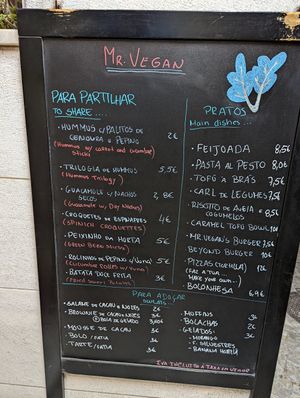 MR. VEGAN
PARA PARTILHAR
TO SHARE ....
• HUMMUS C/PALITOS DE
CENOURA E PEPINO 2€
(Hummus w/ carrot and cucumber
sticks)
• TRILOGIA DE HUMMUS 5,5€
(Hummus Trilogy)
• GUACAMOLE C/NACHOS 2,8€
SECOS
• CROQUETES DE ESPINAFRES 4€
(SPINICH CROQUETTES)
• PEIXINHO DA HORTA 5€
(GREEN BEANS
• ROLINHOS DE PEPINO C/TUNA) 5€
(CUCUMBER ROLLS W/TUNA)
• BATATA DOCE FRITA 3€
(FRIED SWEET BATATAS)
PRATOS
Main dishes ...
• FEIJOADA 8,5€
• PASTA AL PESTO 8,0€
• TOFU À BRÁS 7,5€
• CARIL DE LEGUMES 7,5€
• RISOTTO DE AVEIA E
COGUMELOS 8,5€
• CARAMEL TOFU BOWL 10€
• MR VEGAN'S BURGER 7,5€
• BEYOND BURGER 10€
• PIZZAS
(FAZ A TUA
MAKE YOUR OWN)
• BOLONHESA 6,9€
PARA ADOÇAR
• SALAME DE CACAU E NOZES 2€
• BROWNIE DE CACAU E NOZES 3€
C/BOLA DE GELADO
• MOUSSE DE CACAU 3€
• BOLO/FATIA 3€
• TARTE/FATIA 3€
• MUFFINS 3€
• BOLACHAS 2€
• GELADOS: 3€
- MORANGO
- F. SILVESTRES
- BANANA
IVA INCLUÍDO À TAXA EM VIGOR